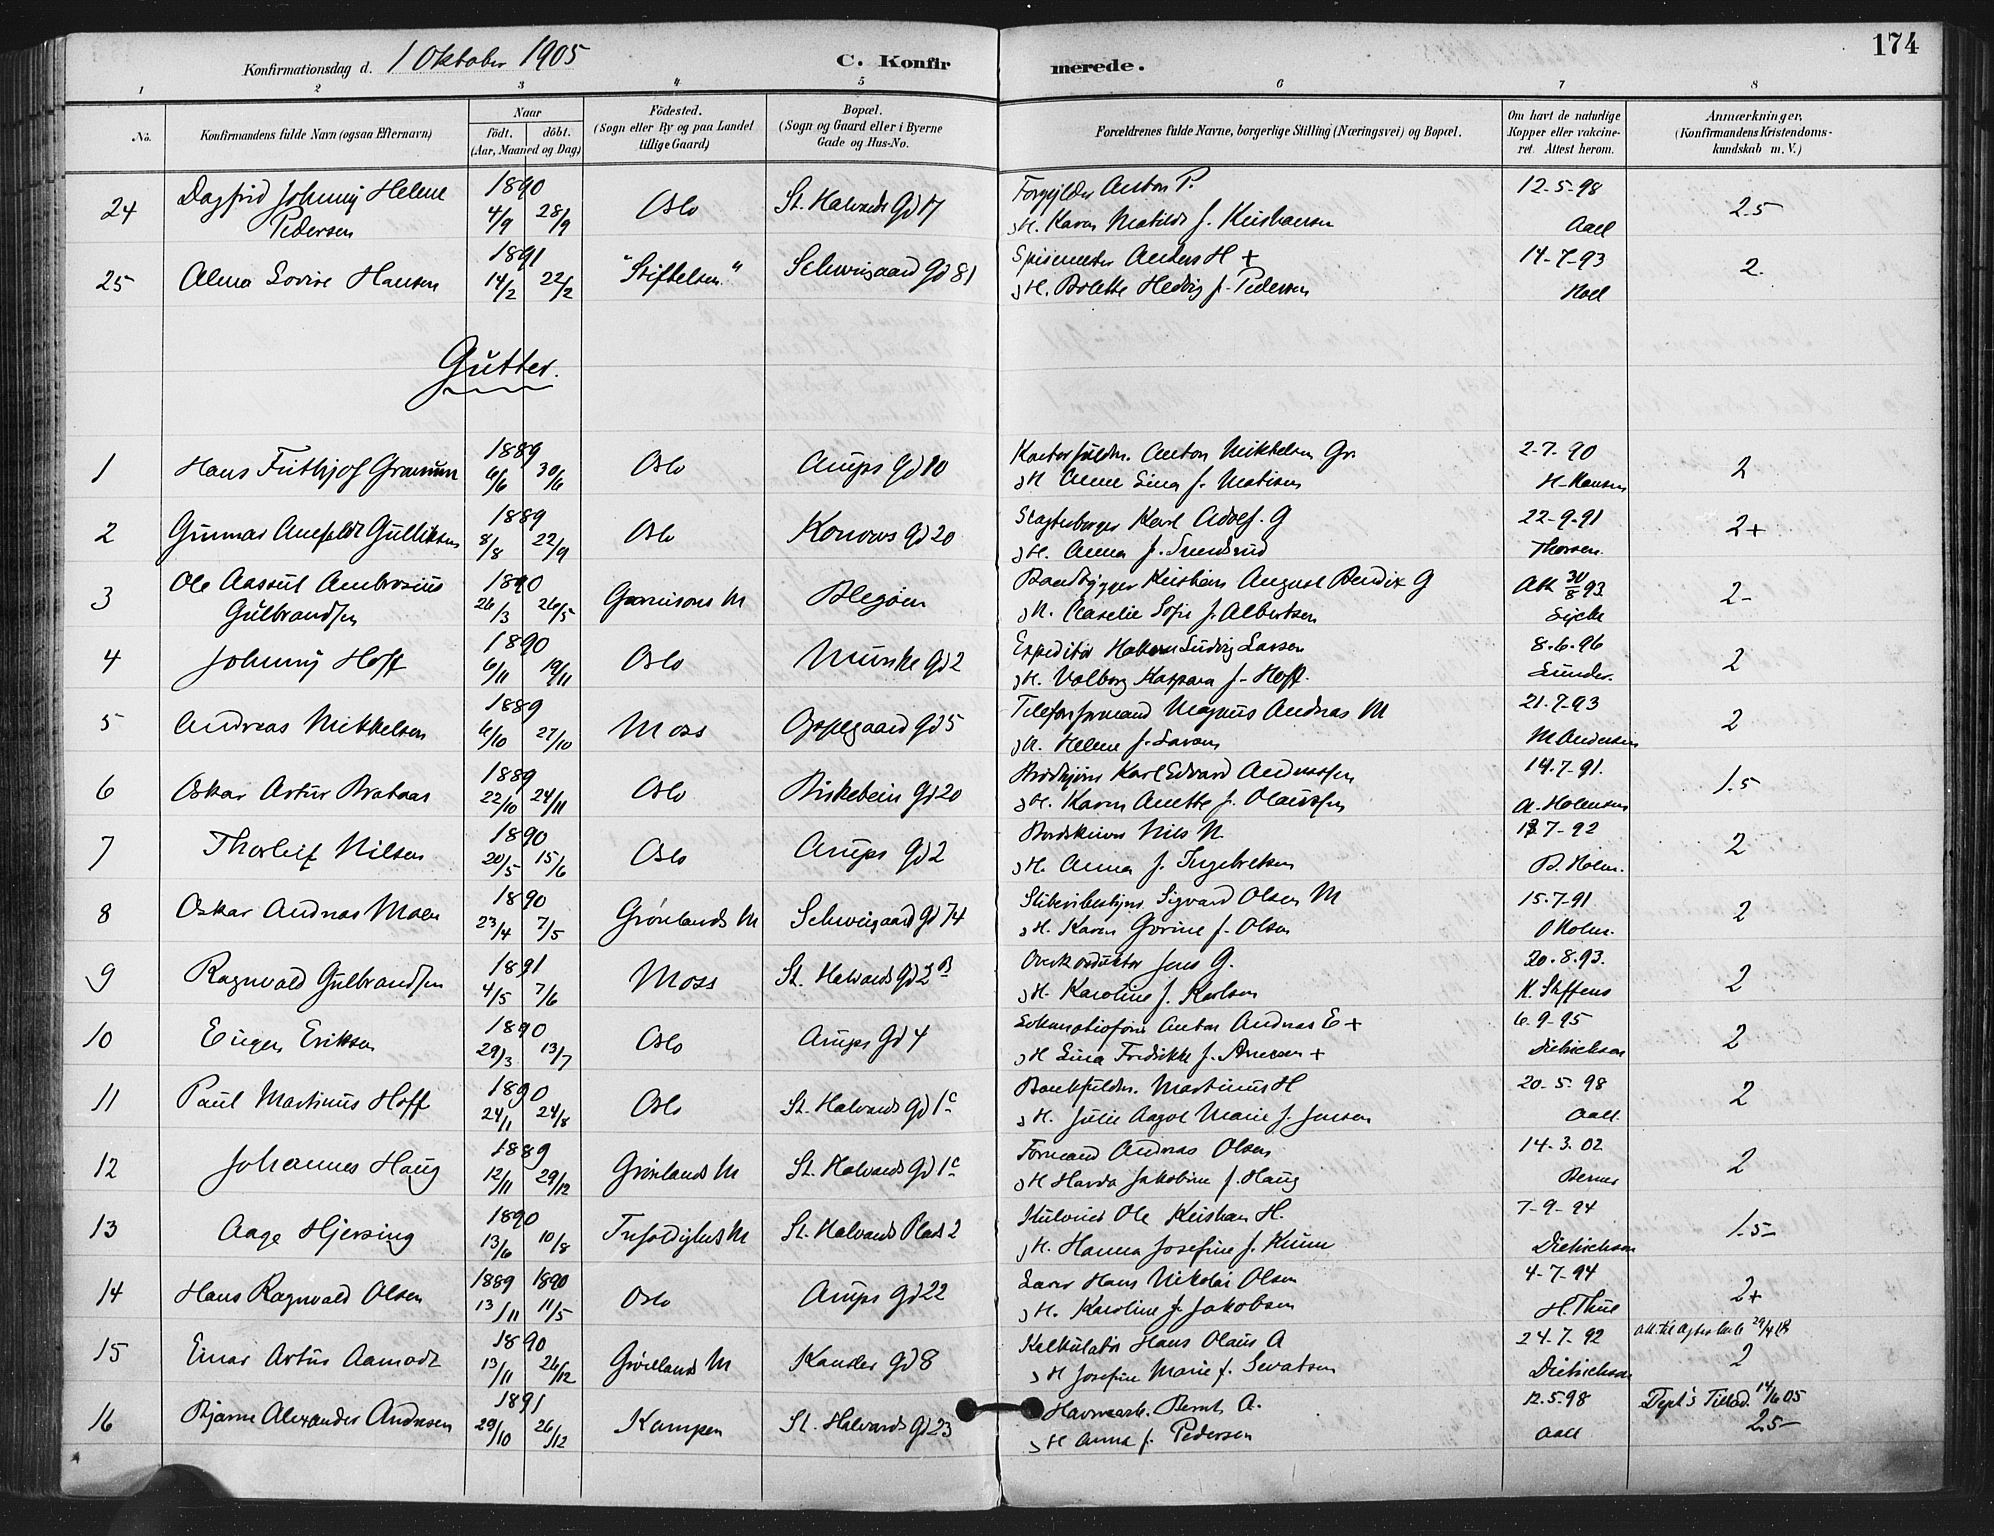 174
Konfirmationsdag d. 1 Oktober 1905 C. Konfirmerede.
1 2 3 4 5 6 7 8
No. Konfirmandens fulde Navn (ogsaa Efternavn) Naar födt. döbt. (Aar, Maaned og Dag) Födested. (Sogn eller By og paa Landet tillige Gaard) Bopæl. (Sogn og Gaard eller i Byerne Gade og Hus-No. Forældrenes fulde Navne, borgerlige Stilling (Næringsvei) og Bopæl. Om havt de naturlige Kopper eller vakcineret. Attest herom. Anmærkninger, (Konfirmandens Kristendomskundskab m. V.)
24 Dagfrid Johnny Helene 1890 Forgylder Anton P. 12-5-98
Pedersen 4/9 28/9 Oslo St. Halvards Gd 17 H. Karen Matilde f. Kristiansen Aall 2.5
25 Alma Lovise Hansen 1891 14/2 22/2 "Stiftelsen" Schweigaard Gd 81 Spisemester Anders H + 14-7-93 2.
H. Bolette Hedvig f. Pedersen
Gutter.
1 Hans Frithjof Gramm 1889 6/6 30/6 Oslo Arups Gd 10 Kontorfuldm. Anton Mikkelsen Gr. 2-7-90 2
H Anne Lina f. Matisen H-Hansen
2 Gunnar Gulliksen 1889 8/8 22/9 Oslo Konows Gd 20 Karl Adolf. G 22-9-91 2+
H. Anna f. Thorsen.
3 Ole Aassul Ambrosius 1890 Kristian August Bendix G Att 30/8 93
Gulbrandsen 26/3 26/5 Garnisons M H. f. Albertsen 2-
4 Johnny Hoff 1890 6/11 19/11 Oslo Munke Gd 2 Expeditør Ludvig Larsen 8.6.96 2
H. Valborg Kaspara f. Hoff. Sunder.
5 Andreas Mikkelsen 1889 6/10 27/10 Moss Oppegaard Gd 5 Telefonformand Magnus Andreas M 21.7-93 2
H. Helene f. Larsen M Andersen
6 Oskar Artur Brataas 1889 22/10 24/11 Oslo Birkebein Gd 20 Karl Edvard Andreassen 14.7-91. 1.5
H. Karen Anette f. Olaussen A. Holmsen
7 Thorleif Nilsen 1890 20/5 15/6 Oslo Arups Gd 2 Nils N. 7-92 2
H. Anna f. Ingebretsen B. Holm.
8 Oskar Andreas Moen 1890 23/4 7/5 Grønlands M Schweigaard Gd 74 Sigvard Olsen M 15.7-91 2
H. Karen Gurine f. Olsen O Holm.
9 Ragnvald Gulbrandsen 1891 4/5 7/6 Moss St. Halvards Gd 2 B Overkonduktør Jens G. 20.8.93. 2
H. Karoline f. Karlsen K. Steffens
10 Eugen Eriksen 1890 29/3 13/7 Oslo Arups Gd 4 Anton Andreas E + 6-9-95 2
H Lina Fredrikke f. + Dietrichson
11 Paul Martinus Hoff 1890 24/1 24/8 Oslo St. Halvards Gd 1 c Bankfuldm. Martinus H 20-5-98 2
H. Julie Aagot Marie f. Jensen Aall
12 Johannes Haug 1889 12/11 29/12 Grønlands M St. Halvards Gd 1 c Formand Andreas Olsen 14-3.02 2
H Jakobine f. Haug Berner
13 Aage Hjersing 1890 13/6 10/8 Trefoldigheds M St. Halvards Plads 2 Ole Kristian H. 7-9-94 1-5-
H. Hanna Josefine f. Dietrichson
14 Hans Ragnvald Olsen 1889 1890 13/11 11/5 Oslo Arups Gd 22 Hans Nikolai Olsen 4-7-94 2+
H. Karoline f. Jakobsen H. Thue
15 Einar Artur Aamodt 1890 13/11 26/12 Grønlands M Kansler Gd 8 Kalkulatør Hans Olaus A 24-7-92 29/4 18 2
H Josefine Marie f. Dietrichson
16 Bjarne Alexander Andresen 1891 29/10 26/12 Kampen St. Halvards Gd 23 Bernt A. 12.5-98 Dept's Tillad. 14/6 05
H Anna f. Pedersen Aall 2.5-